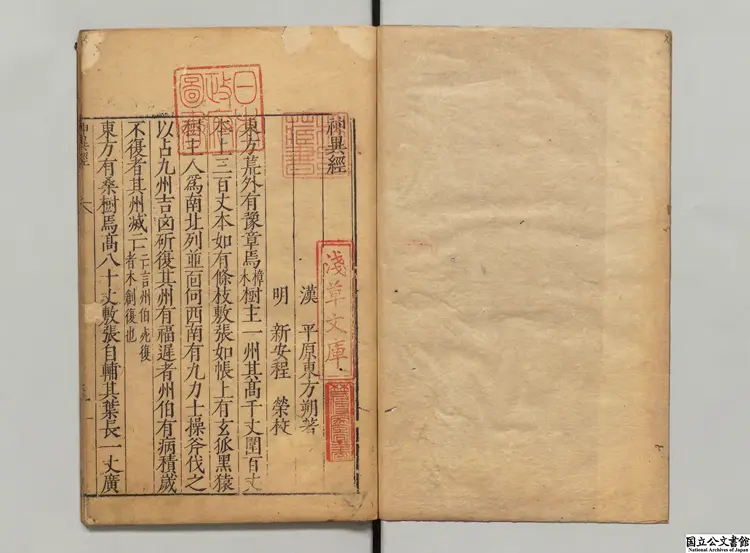 神異經
漢 平原東方朔著
明 新安程 榮校
東方荒外有豫章焉樟木樹主一州其髙千丈圍百丈
本上三百丈本如有條枝敷張如帳上有玄狐黑猿
主人爲南北列並靣何西南有九力士操斧伐之
以占九州吉凶斫復其州有福遲者州伯有病積歲
不復者其州滅亡言州伯死復者木創復也
東方有桑樹焉髙八十丈敷張自輔其葉長一丈廣
神異經
日本政府圖書
淺草文庫
国立公文書館
National Archives of Japan